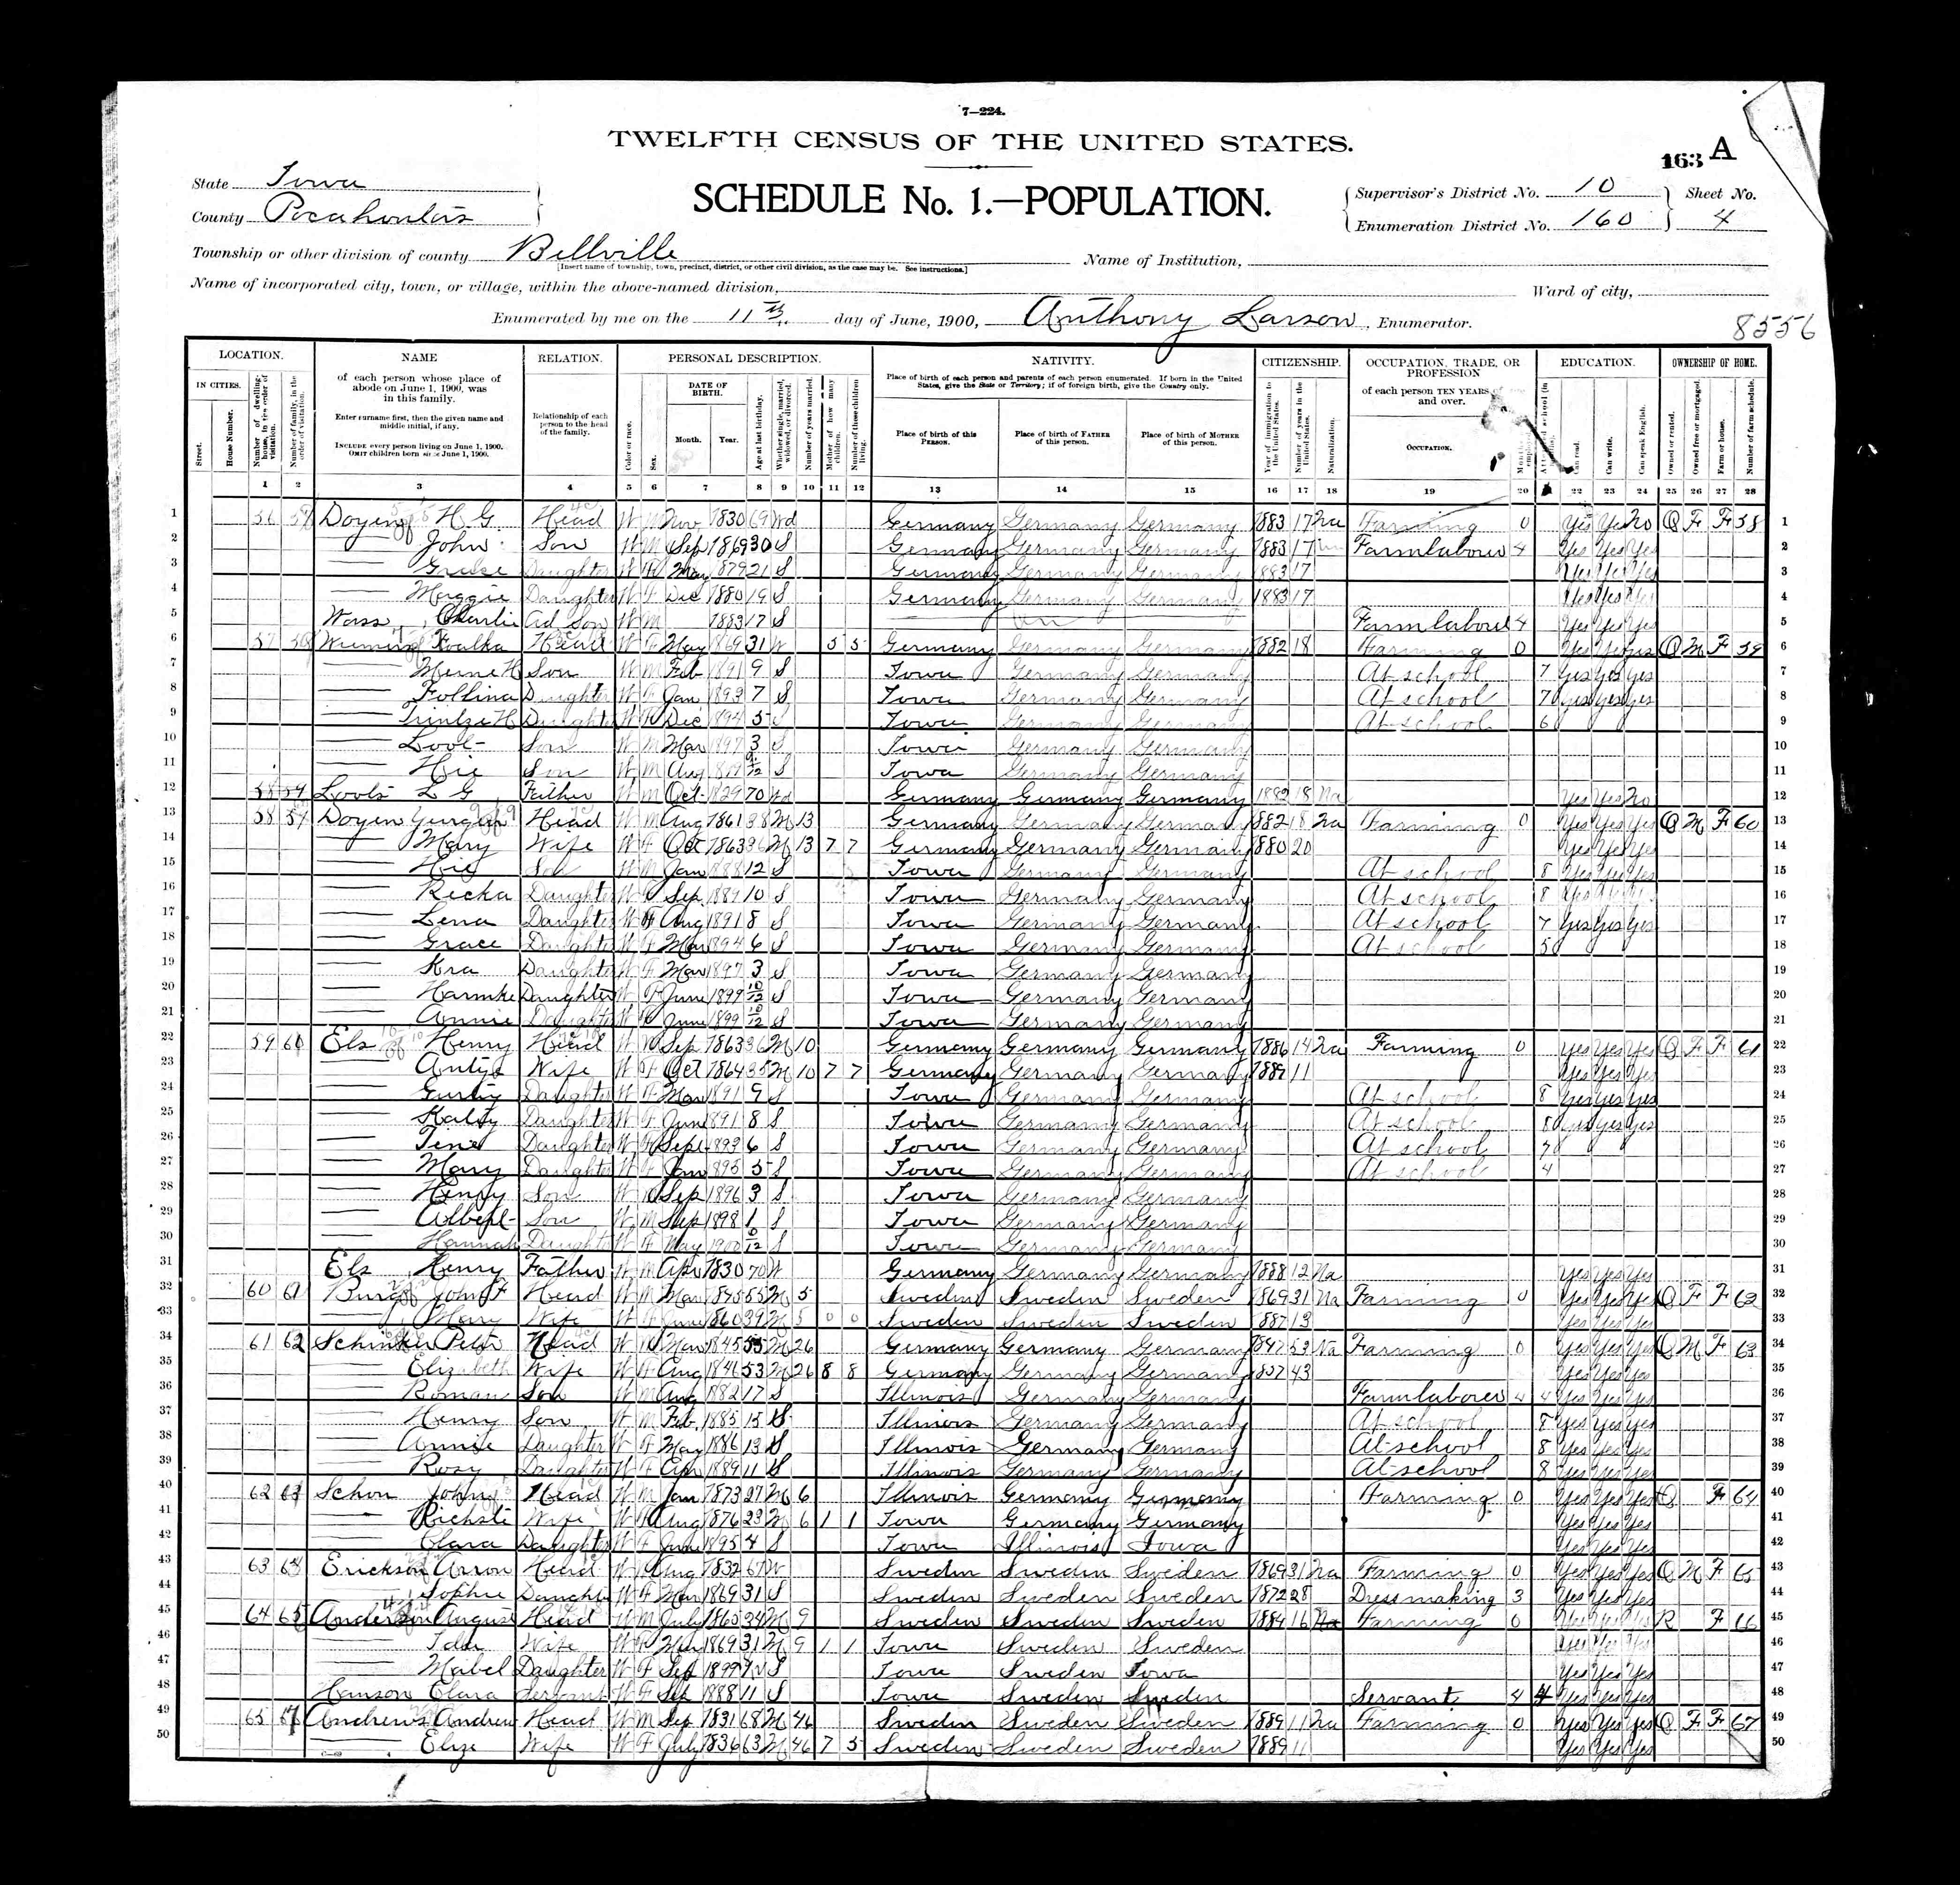 7—224.
TWELFTH CENSUS OF THE UNITED STATES.
163 A
State Iowa
County Pocahontas
SCHEDULE No. 1.—POPULATION.
Supervisor's District No. 10 Sheet No.
Enumeration District No. 160 4
Township or other division of county Bellville Name of Institution,
[Insert name of township, town, precinct, district, or other civil division, as the case may be. See instructions.]
Name of incorporated city, town, or village, within the above-named division, Ward of city,
Enumerated by me on the 11th day of June, 1900, Anthony Larson, Enumerator.
8556
LOCATION. NAME RELATION. PERSONAL DESCRIPTION. NATIVITY. CITIZENSHIP. OCCUPATION, TRADE, OR PROFESSION EDUCATION. OWNERSHIP OF HOME.
IN CITIES. Street. House Number. Number of dwelling-house, in the order of visitation. Number of family, in the order of visitation.
of each person whose place of abode on June 1, 1900, was in this family.
Enter surname first, then the given name and middle initial, if any.
INCLUDE every person living on June 1, 1900. OMIT children born since June 1, 1900.
Relationship of each person to the head of the family.
Color or race. Sex. DATE OF BIRTH. Month. Year. Age at last birthday. Whether single, married, widowed, or divorced. Number of years married. Mother of how many children. Number of these children living.
Place of birth of each person and parents of each person enumerated. If born in the United States, give the State or Territory; if of foreign birth, give the Country only.
Place of birth of this PERSON. Place of birth of FATHER of this person. Place of birth of MOTHER of this person.
Year of immigration to the United States. Number of years in the United States. Naturalization.
of each person TEN YEARS and over.
OCCUPATION.
Can read. Can write. Can speak English. Owned or rented. Owned free or mortgaged. Farm or house. Number of farm schedule.
1 2 3 4 5 6 7 8 9 10 11 12 13 14 15 16 17 18 19 20 22 23 24 25 26 27 28
1 56 H G Head W M Nov 1830 69 Wd Germany Germany Germany 1883 17 Na Farming 0 Yes Yes No O F F 58 1
2 John Son W M Sep 1869 30 S Germany Germany Germany 1883 17 Farm labour 4 Yes Yes Yes 2
3 Daughter W F May 1879 21 S Germany Germany Germany 1883 17 Yes Yes Yes 3
4 Maggie Daughter W F Dec 1880 19 S Germany Germany Germany 1883 17 Yes Yes Yes 4
5 Charlie Ad Son W M 1883 17 S Farm labour 4 Yes Yes Yes 5
6 57 Head W F May 1869 31 W 5 5 Germany Germany Germany 1882 18 Farming 0 Yes Yes yes O M F 59 6
7 Son W M Feb 1891 9 S Iowa Germany Germany At school 7 yes yes yes 7
8 Daughter W F Jan 1893 7 S Iowa Germany Germany At school 7 yes yes yes 8
9 Daughter W F Dec 1894 5 S Iowa Germany Germany At school 6 9
10 Son W M Mar 1897 3 S Iowa Germany Germany 10
11 Son W M Aug S Iowa Germany Germany 11
12 Father W M Oct 1829 70 Wd Germany Germany Germany 1882 18 Na Yes Yes No 12
13 58 Doyen Head W M Aug 1861 38 M 13 Germany Germany Germany 1882 18 Na Farming 0 Yes Yes Yes O M F 60 13
14 Mary Wife W F Oct 1863 36 M 13 7 7 Germany Germany Germany 1880 20 Yes Yes Yes 14
15 Son W M Jan 1888 12 S Iowa Germany Germany At school 8 Yes Yes Yes 15
16 Ricka Daughter W F Sep 1889 10 S Iowa Germany Germany At school 8 Yes 16
17 Lena Daughter W F Aug 1891 8 S Iowa Germany Germany At school 7 yes yes yes 17
18 Grace Daughter W F Mar 1894 6 S Iowa Germany Germany At school 5 18
19 Daughter W F Mar 1897 3 S Iowa Germany Germany 19
20 Harmke Daughter W F June 1899 10/12 S Iowa Germany Germany 20
21 Annie Daughter W F June 1899 10/12 S Iowa Germany Germany 21
22 59 Els Henry Head W M Sep 1863 36 M 10 Germany Germany Germany 1886 14 Na Farming 0 Yes Yes Yes O F F 61 22
23 Wife W F Oct 1864 35 M 10 7 7 Germany Germany Germany 1889 11 Yes Yes Yes 23
24 Daughter W F Mar 1891 9 S Iowa Germany Germany At school 8 yes yes yes 24
25 Daughter W F June 1891 8 S Iowa Germany Germany At school 8 yes yes yes 25
26 Daughter W F Sept 1893 6 S Iowa Germany Germany At school 7 26
27 Mary Daughter W F Jan 1895 5 S Iowa Germany Germany At school 4 27
28 Henry Son W M Sep 1896 3 S Iowa Germany Germany 28
29 Son W M Sep 1898 1 S Iowa Germany Germany 29
30 Hannah Daughter W F May 1900 0/12 S Iowa Germany Germany 30
31 Els Henry Father W M Apr 1830 70 W Germany Germany Germany 1888 12 Na Yes Yes Yes 31
32 60 61 John F Head W M Mar 1845 55 M 5 Sweden Sweden Sweden 1869 31 Na Farming 0 Yes Yes Yes O F F 62 32
33 Mary Wife W F June 1860 39 M 5 0 0 Sweden Sweden Sweden 1887 13 Yes Yes Yes 33
34 61 62 Peter Head W M Mar 1845 55 M 26 Germany Germany Germany 1847 53 Na Farming 0 Yes Yes Yes O M F 63 34
35 Elizabeth Wife W F Aug 1846 53 M 26 8 8 Germany Germany Germany 1857 43 Yes Yes Yes 35
36 Roman Son W M Aug 1882 17 S Illinois Germany Germany Farm laborer 4 4 Yes Yes Yes 36
37 Henry Son W M Feb 1885 15 S Illinois Germany Germany At school 8 Yes Yes Yes 37
38 Annie Daughter W F May 1886 13 S Illinois Germany Germany At school 8 Yes Yes Yes 38
39 Rosy Daughter W F Apr 1889 11 S Illinois Germany Germany At school 8 Yes Yes Yes 39
40 62 63 Schon John Head W M Jan 1873 27 M 6 Illinois Germany Germany Farming 0 Yes Yes Yes F 64 40
41 Wife W F Aug 1876 23 M 6 1 1 Iowa Germany Germany Yes Yes Yes 41
42 Clara Daughter W F June 1895 4 S Iowa Illinois Iowa Yes Yes Yes 42
43 63 64 Erickson Arron Head W M Aug 1832 67 W Sweden Sweden Sweden 1869 31 Na Farming 0 Yes Yes Yes O M F 65 43
44 Sophie Daughter W F Mar 1869 31 S Sweden Sweden Sweden 1872 28 Dressmaking 3 Yes Yes Yes 44
45 64 65 Anderson August Head W M July 1865 34 M 9 Sweden Sweden Sweden 1884 16 Na Farming 0 Yes Yes Yes R F 66 45
46 Ida Wife W F Mar 1869 31 M 9 1 1 Iowa Sweden Sweden Yes Yes Yes 46
47 Mabel Daughter W F Sep S Iowa Sweden Iowa Yes Yes Yes 47
48 Hanson Clara Servant W F Sep 1888 11 S Iowa Sweden Sweden Servant 4 4 Yes Yes Yes 48
49 65 Andrews Andrew Head W M Sep 1831 68 M 46 Sweden Sweden Sweden 1889 11 Na Farming 0 Yes Yes yes O F F 67 49
50 Elize Wife W F July 1836 63 M 46 7 5 Sweden Sweden Sweden 1889 11 Yes Yes Yes 50